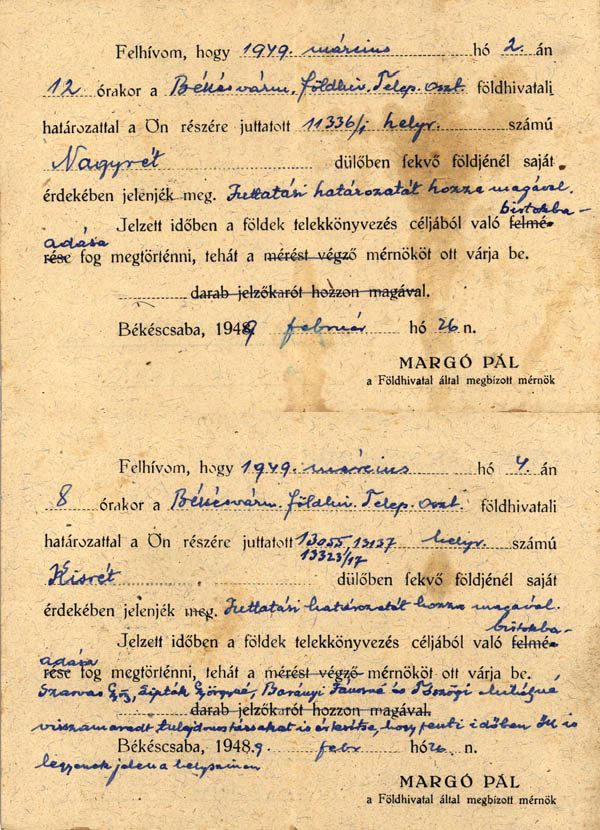 Felhívom, hogy 1949. március hó 2. án
12 órakor a Békésvárm. Földhiv. Telep. Oszt. földhivatali
határozattal a Ön részére juttatott 11336/j helyr. számú
Nagyrét dülőben fekvő földjénél saját
érdekében jelenjék meg. Juttatási határozatát hozza magával.
Jelzett időben a földek telekkönyvezés céljából való felmé- birtokba-
rése adása fog megtörténni, tehát a mérést végző mérnököt ott várja be.
darab jelzőkarót hozzon magával.
Békéscsaba, 1949 február hó 26 n.
MARGÓ PÁL
a Földhivatal által megbízott mérnök
Felhívom, hogy 1949. március hó 4. án
8 órakor a Békésvárm. Földhiv. Telep. Oszt. földhivatali
határozattal a Ön részére juttatott 13055, 13137 helyr. számú
13323/17
Kisrét dülőben fekvő földjénél saját
érdekében jelenjék meg. Juttatási határozatát hozza magával.
Jelzett időben a földek telekkönyvezés céljából való felmé- birtokba-
rése adása fog megtörténni, tehát a mérést végző mérnököt ott várja be.
Szarvas Lipták Györgyné, Baranyi és
darab jelzőkarót hozzon magával.
visszamaradt tulajdonostársakat is értesítse, hogy fenti időben itt is
Békéscsaba, 1948.9. febr hó 26. n.
legyenek jelen a helyszinen
MARGÓ PÁL
a Földhivatal által megbízott mérnök